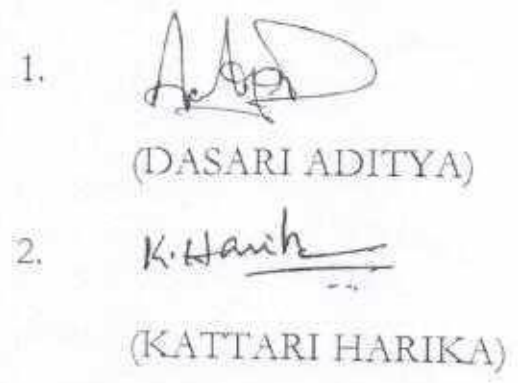 1.
(DASARI ADITYA)
2. K. Harika
(KATTARI HARIKA)